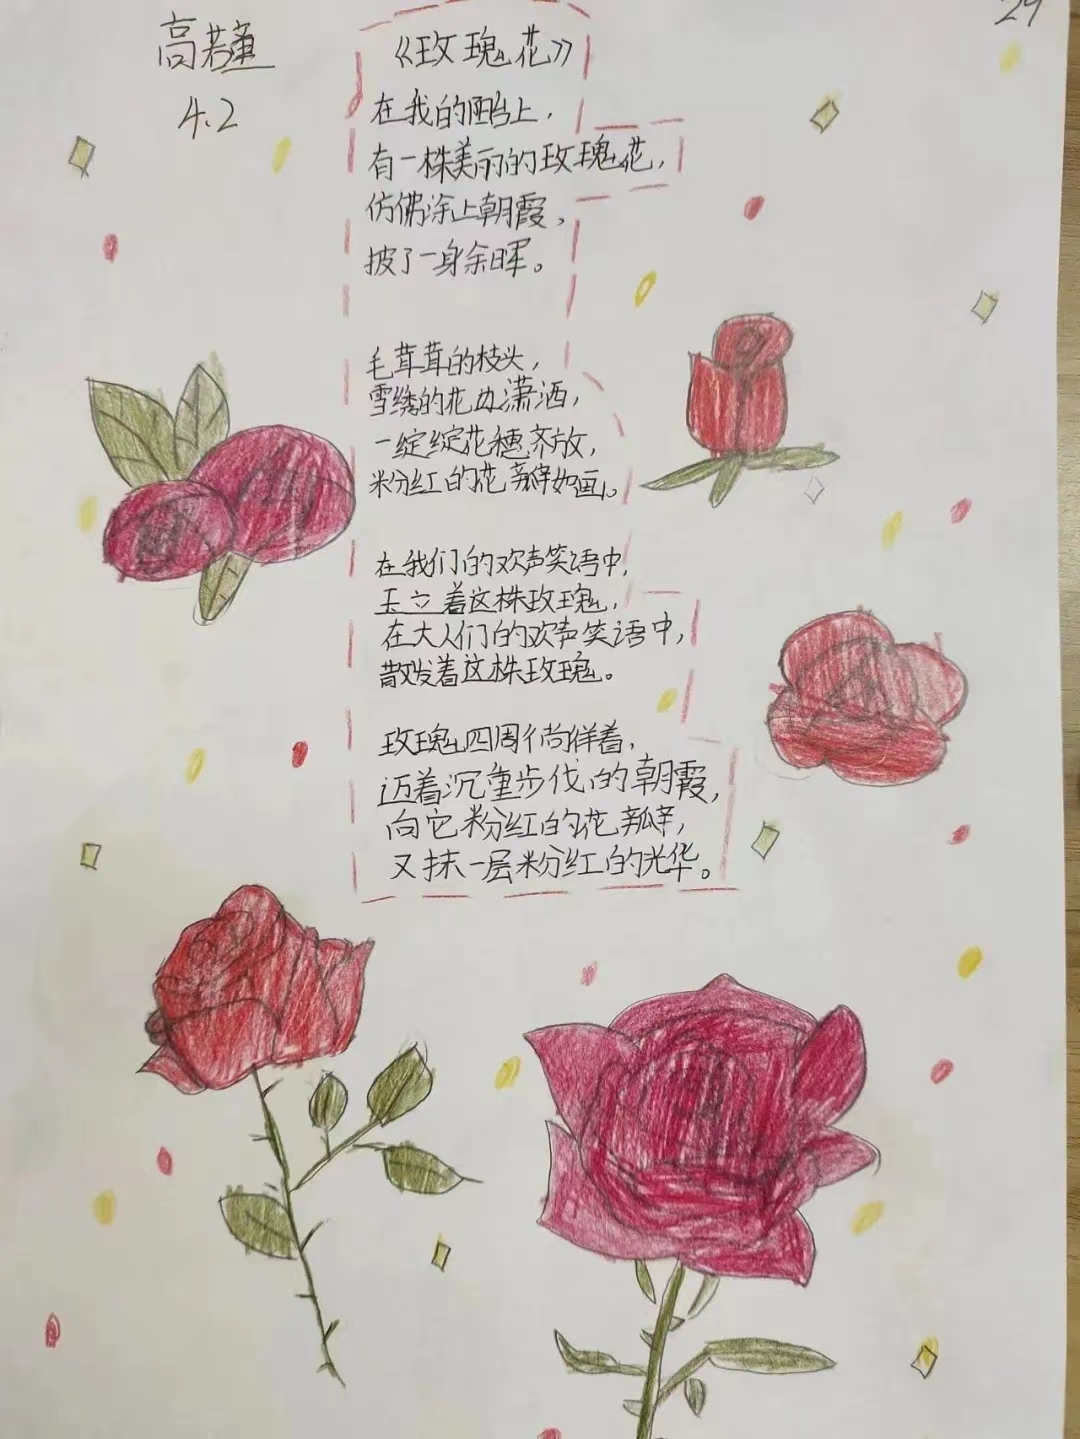 高若童
4.2
29
《玫瑰花》
在我的阳台上，
有一株美丽的玫瑰花，
仿佛涂上朝霞，
披了一身余晖。
毛茸茸的枝头，
雪绣的花边潇洒，
一绽绽花穗齐放，
粉红的花瓣如画。
在我们的欢声笑语中，
玉立着这株玫瑰，
在大人们的欢声笑语中，
散发着这株玫瑰。
玫瑰四周徜徉着，
迈着沉重步伐的朝霞，
向它粉红的花瓣，
又抹一层粉红的光华。